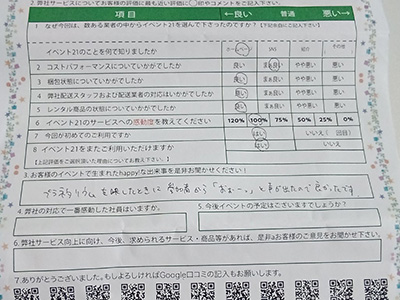 2.弊社サービスについてお客様の評価に最も近い評価に〇印やコメントをご記入下さい。
項目 ←良い 普通 悪い→
1 なぜ今回は、数ある業者の中からイベント21を選んで下さったのですか？
イベント21のことを何で知りましたか ホームページ SNS 紹介 その他
2 コストパフォーマンスについていかがでしたか 良い まぁ良い やや悪い 悪い
3 梱包状態についていかがでしたか 良い まぁ良い やや悪い 悪い
4 弊社配送スタッフおよび配送業者の対応はいかがでしたか 良い まぁ良い やや悪い 悪い
5 レンタル商品の状態についていかがでしたか 良い まぁ良い やや悪い 悪い
6 イベント21のサービスへの感動度を教えてください 120% 100% 75% 50% 25% 0%
7 今回が初めてのご利用ですか はい いいえ（ 回目）
8 イベント21をまたご利用いただけますか はい いいえ
【上記評価をご選択頂いた理由についてお教え下さい。】
3.お客様のイベントで生まれたhappy!な出来事を是非お聞かせください！
プラネタリウムを映したときに参加者から「おぉ〜」と声が出たので良かったです
4.弊社の対応で一番感動した社員はいますか。 5.今後イベントの予定はございますでしょうか？
6.弊社サービス向上に向け、今後、求められるサービス・商品等があれば、是非お客様のご意見をお聞かせ下さい。
7.ありがとうございました。もしよろしければGoogle口コミの記入もお願いします。